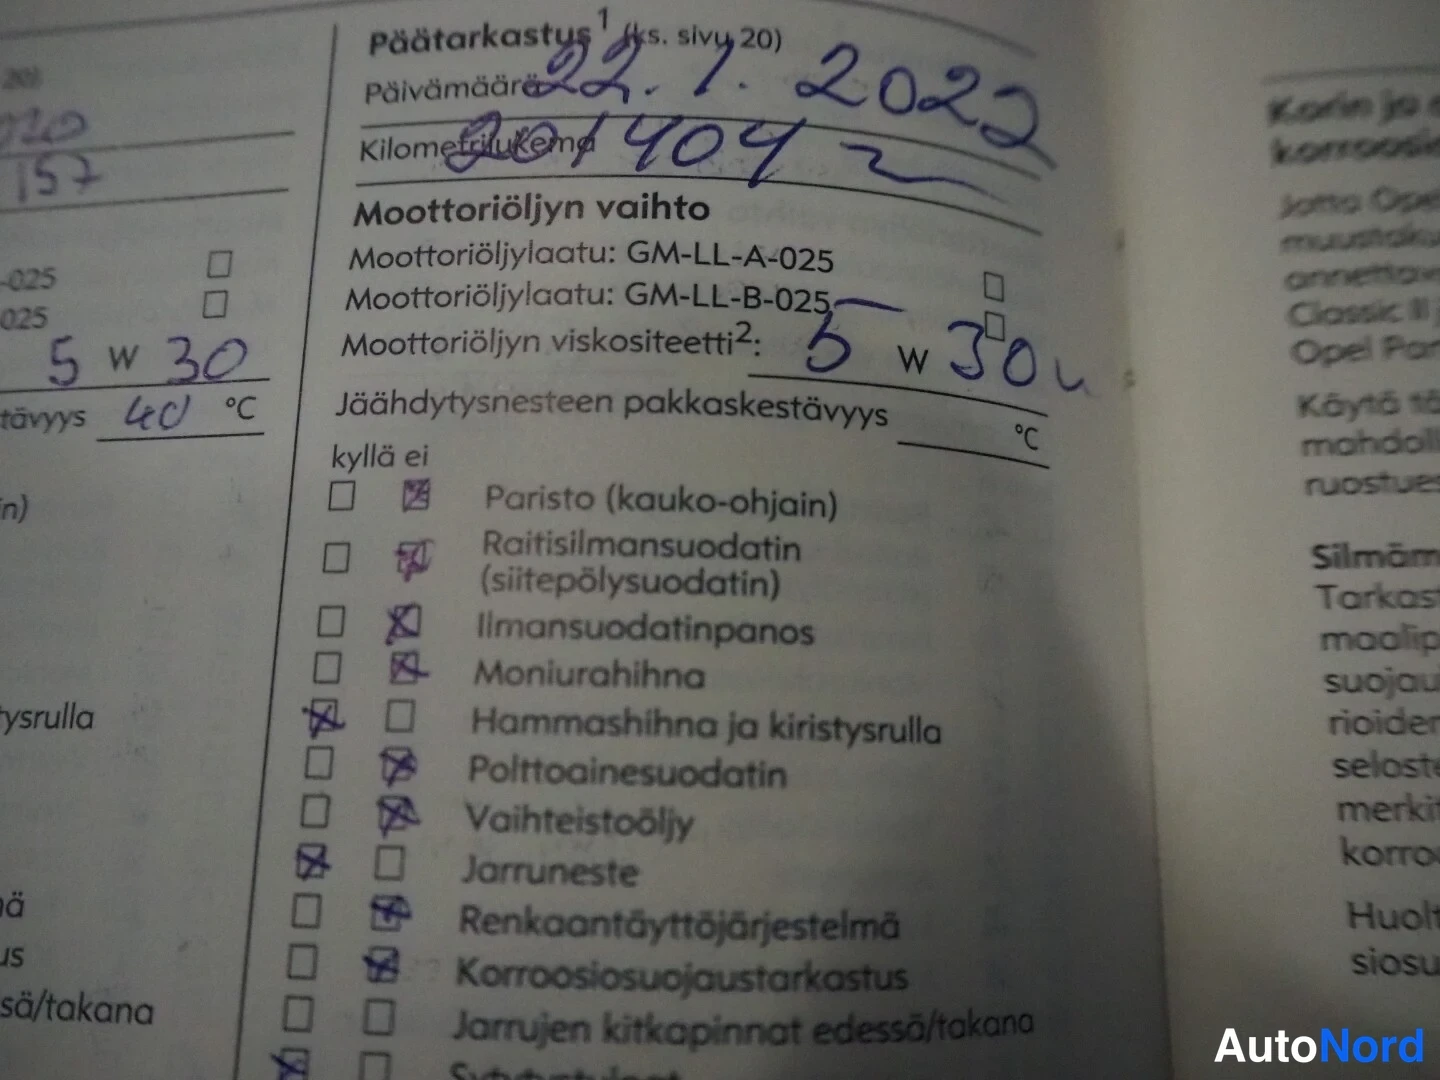 20)
157
-025
025
5 W 30
tävyys 40 °C
in)
tysrulla
us
sä/takana
Päätarkastus¹ (ks. sivu 20)
Päivämäärä 22. 1. 2022
Kilometrilukema 201404
Moottoriöljyn vaihto
Moottoriöljylaatu: GM-LL-A-025
Moottoriöljylaatu: GM-LL-B-025
Moottoriöljyn viskositeetti²: 5 W 30
Jäähdytysnesteen pakkaskestävyys
°C
kyllä ei
Paristo (kauko-ohjain)
Raitisilmansuodatin
(siitepölysuodatin)
Ilmansuodatinpanos
Moniurahihna
Hammashihna ja kiristysrulla
Polttoainesuodatin
Vaihteistoöljy
Jarruneste
Renkaantäyttöjärjestelmä
Korroosiosuojaustarkastus
Jarrujen kitkapinnat edessä/takana
Sytytystulpat
Korin ja
korroosi
Jotta Ope
muutoku
annetta
Classic II
Opel Par
Käytä tä
mahdoll
ruostues
Silmäm
Tarkast
maalip
suojau
rioider
seloste
merkit
korro
Huolt
siosu
AutoNord